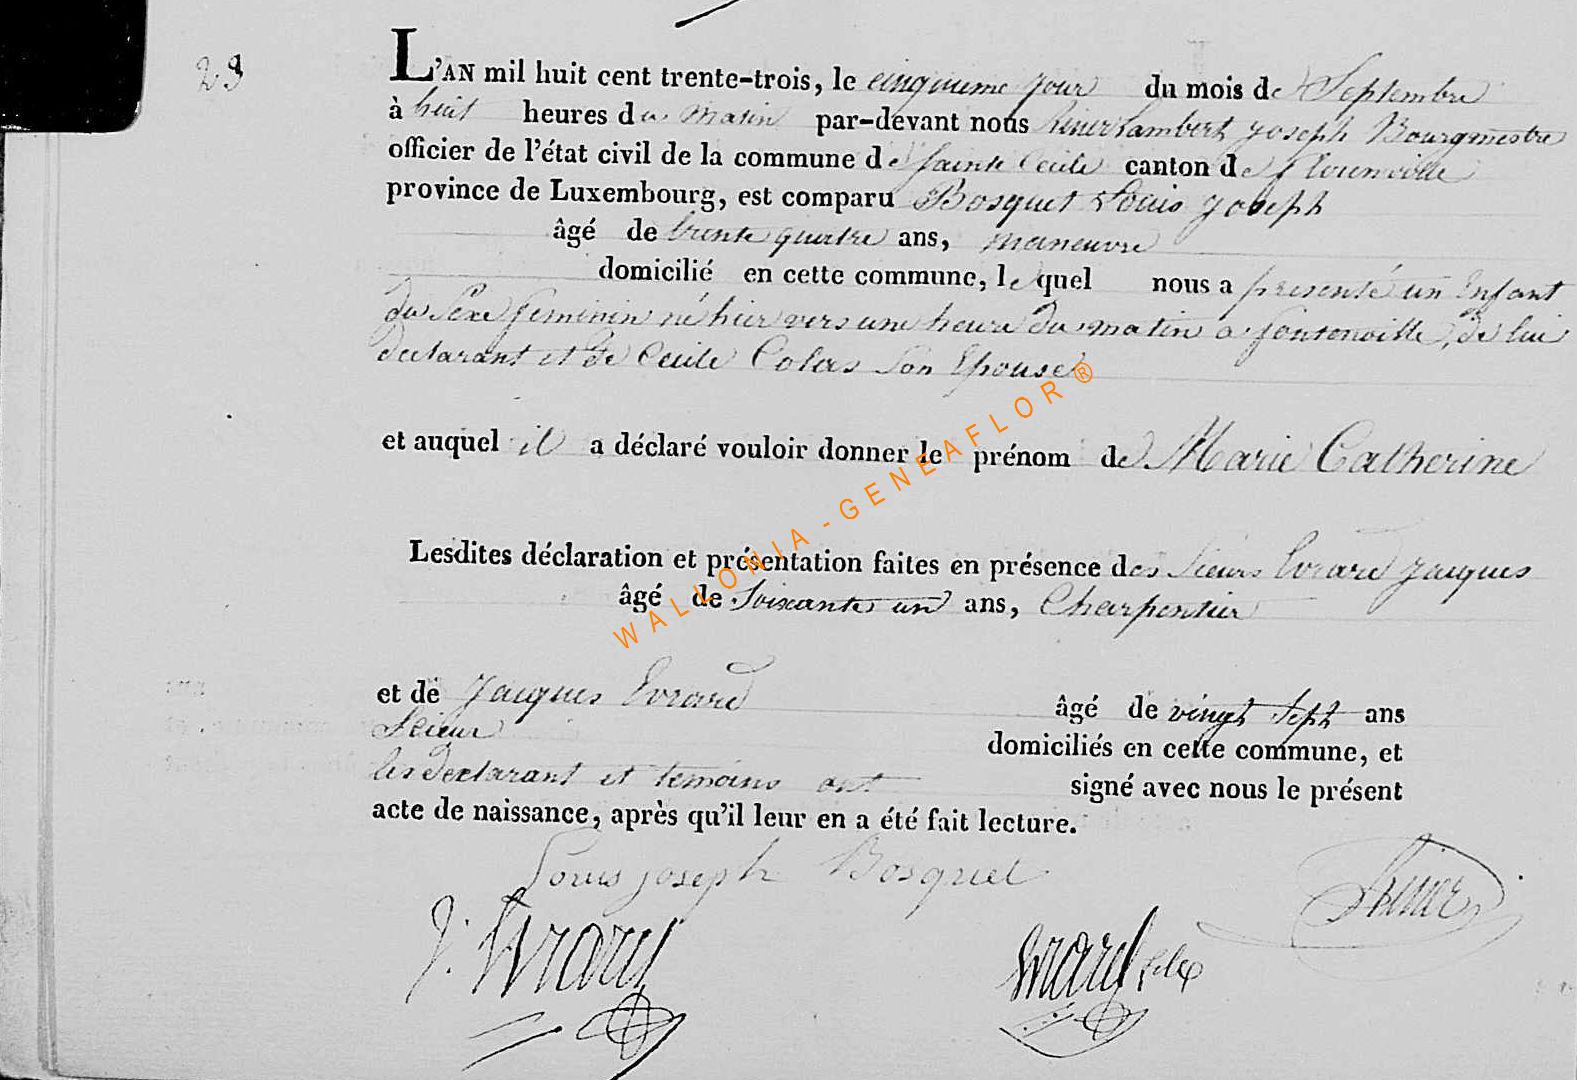 23
L'AN mil huit cent trente-trois, le cinquieme jour du mois de Septembre
à huit heures du matin par-devant nous Lambert Joseph Bourgmestre
officier de l'état civil de la commune de Sainte Cecile canton de florenville
province de Luxembourg, est comparu Bosquet Louis Joseph
âgé de trente quatre ans, maneuvre
domicilié en cette commune, lequel nous a presenté un Enfant
du Sexe feminin né hier vers une heure du matin a fontenoille, de lui
declarant et de Cecile Colas Son Epouse
et auquel il a déclaré vouloir donner le prénom de Marie Catherine
Lesdites déclaration et présentation faites en présence des Sieurs Evrard Jacques
âgé de Soixante un ans, Charpentier
et de Jacques Evrard âgé de vingt Sept ans
Scieur domiciliés en cette commune, et
les declarant et temoins ont signé avec nous le présent
acte de naissance, après qu'il leur en a été fait lecture.
Louis joseph Bosquet
J. Evrard
Evrard fils
WALLONIA - GENEAFLOR ®